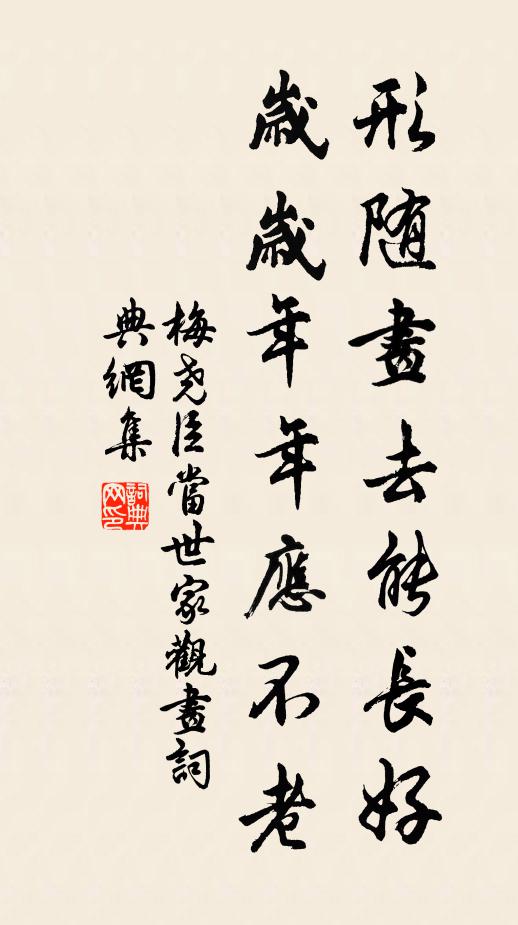 形随畫去能長好
歲歲年年應不老
梅尧臣當世家觀畫詞
典網集
詞典
网印